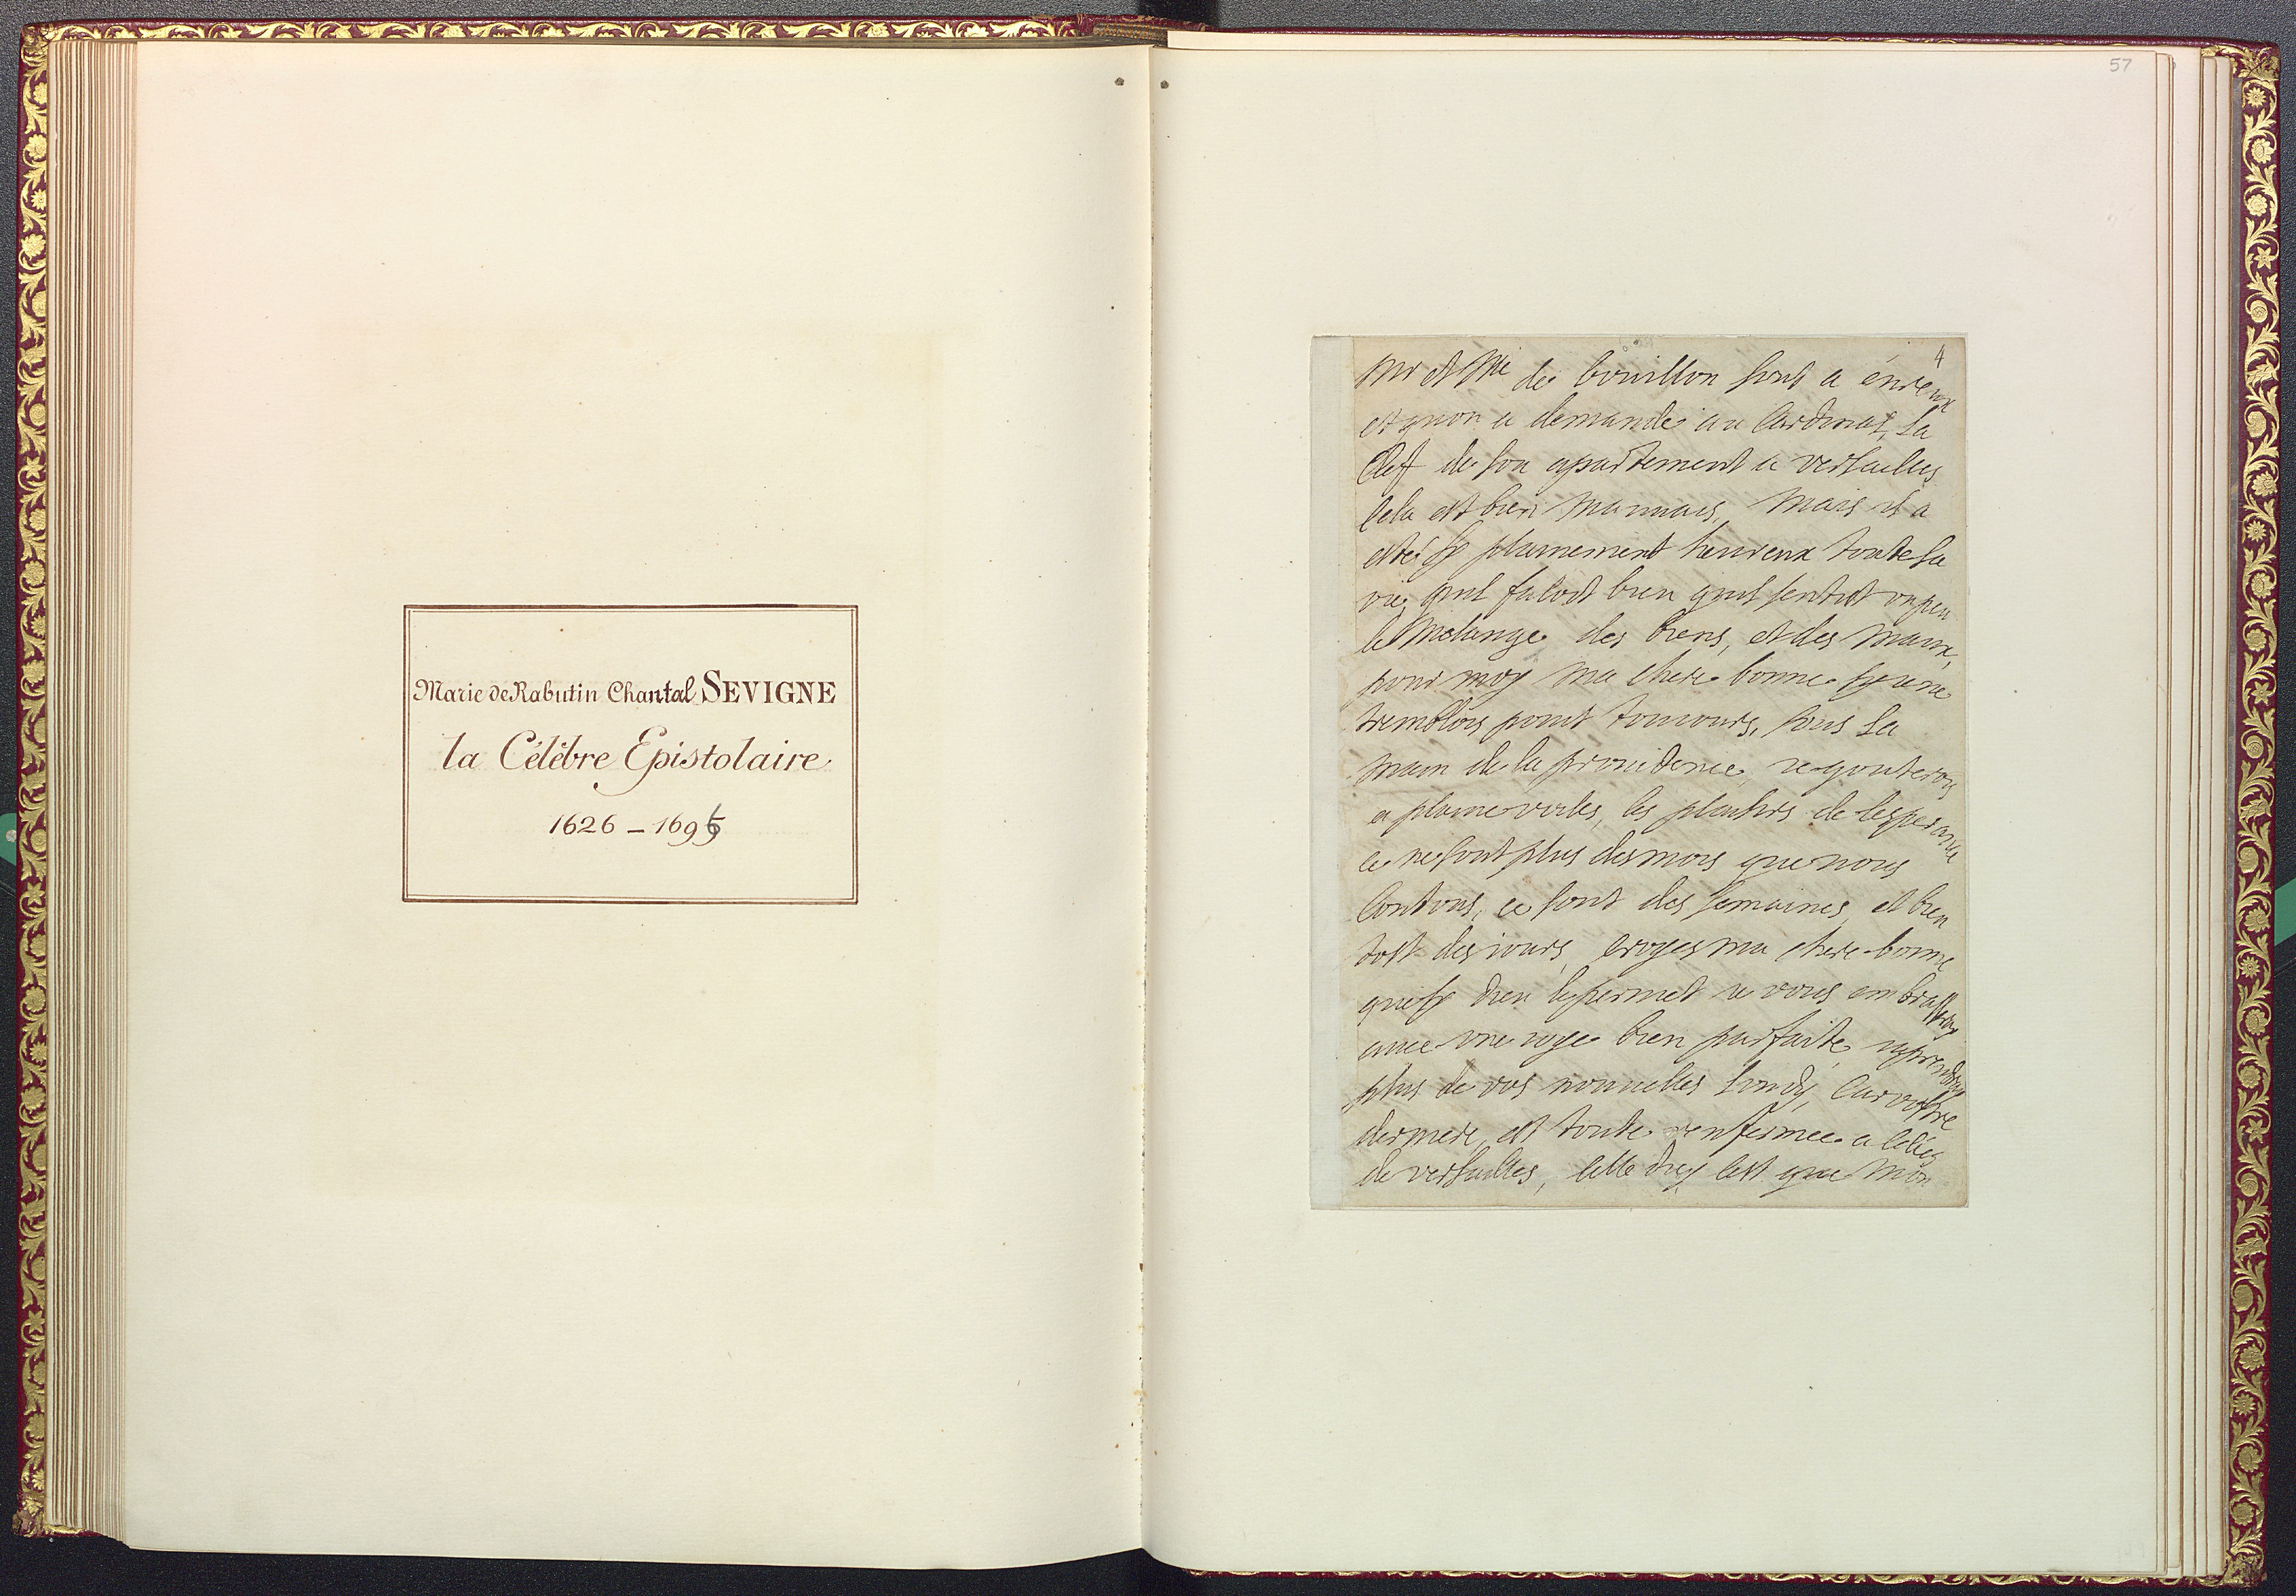 Marie de Rabutin Chantal SEVIGNE
la Célèbre Epistolaire
1626 – 1696
57
4
Mr et Me de bouillon sont a évreux
et quon a demandé au Cardinal, la
Clef de son apartement a versailles
cela est bien mauuais, mais il a
esté sy plainement heureux toute sa
vie, quil faloit bien quil sentist vn peu
le mélange des biens, et des maux,
pour moy ma chere bonne sy ie ne
tremblois point touiours, sous la
main de la prouidence, ie gouterois
a plaine voiles, les plaisirs de lesperance
ce ne sont plus des mois que nous
Contons, ce sont des semaines, et bien
tost des iours, croyes ma chere bonne
que sy dieu le permet ie vous embrasseray
auec vne ioye bien parfaite,
plus de vos nouuelles lundy, Car vostre
derniere, est toute renfermee a celles
de versailles, celle dicy cest que mon